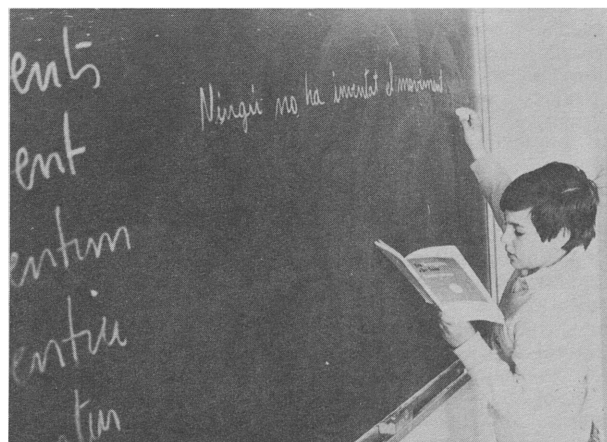 ents
ent
entim
entiu
entin
Ningú no ha inventat el moviment